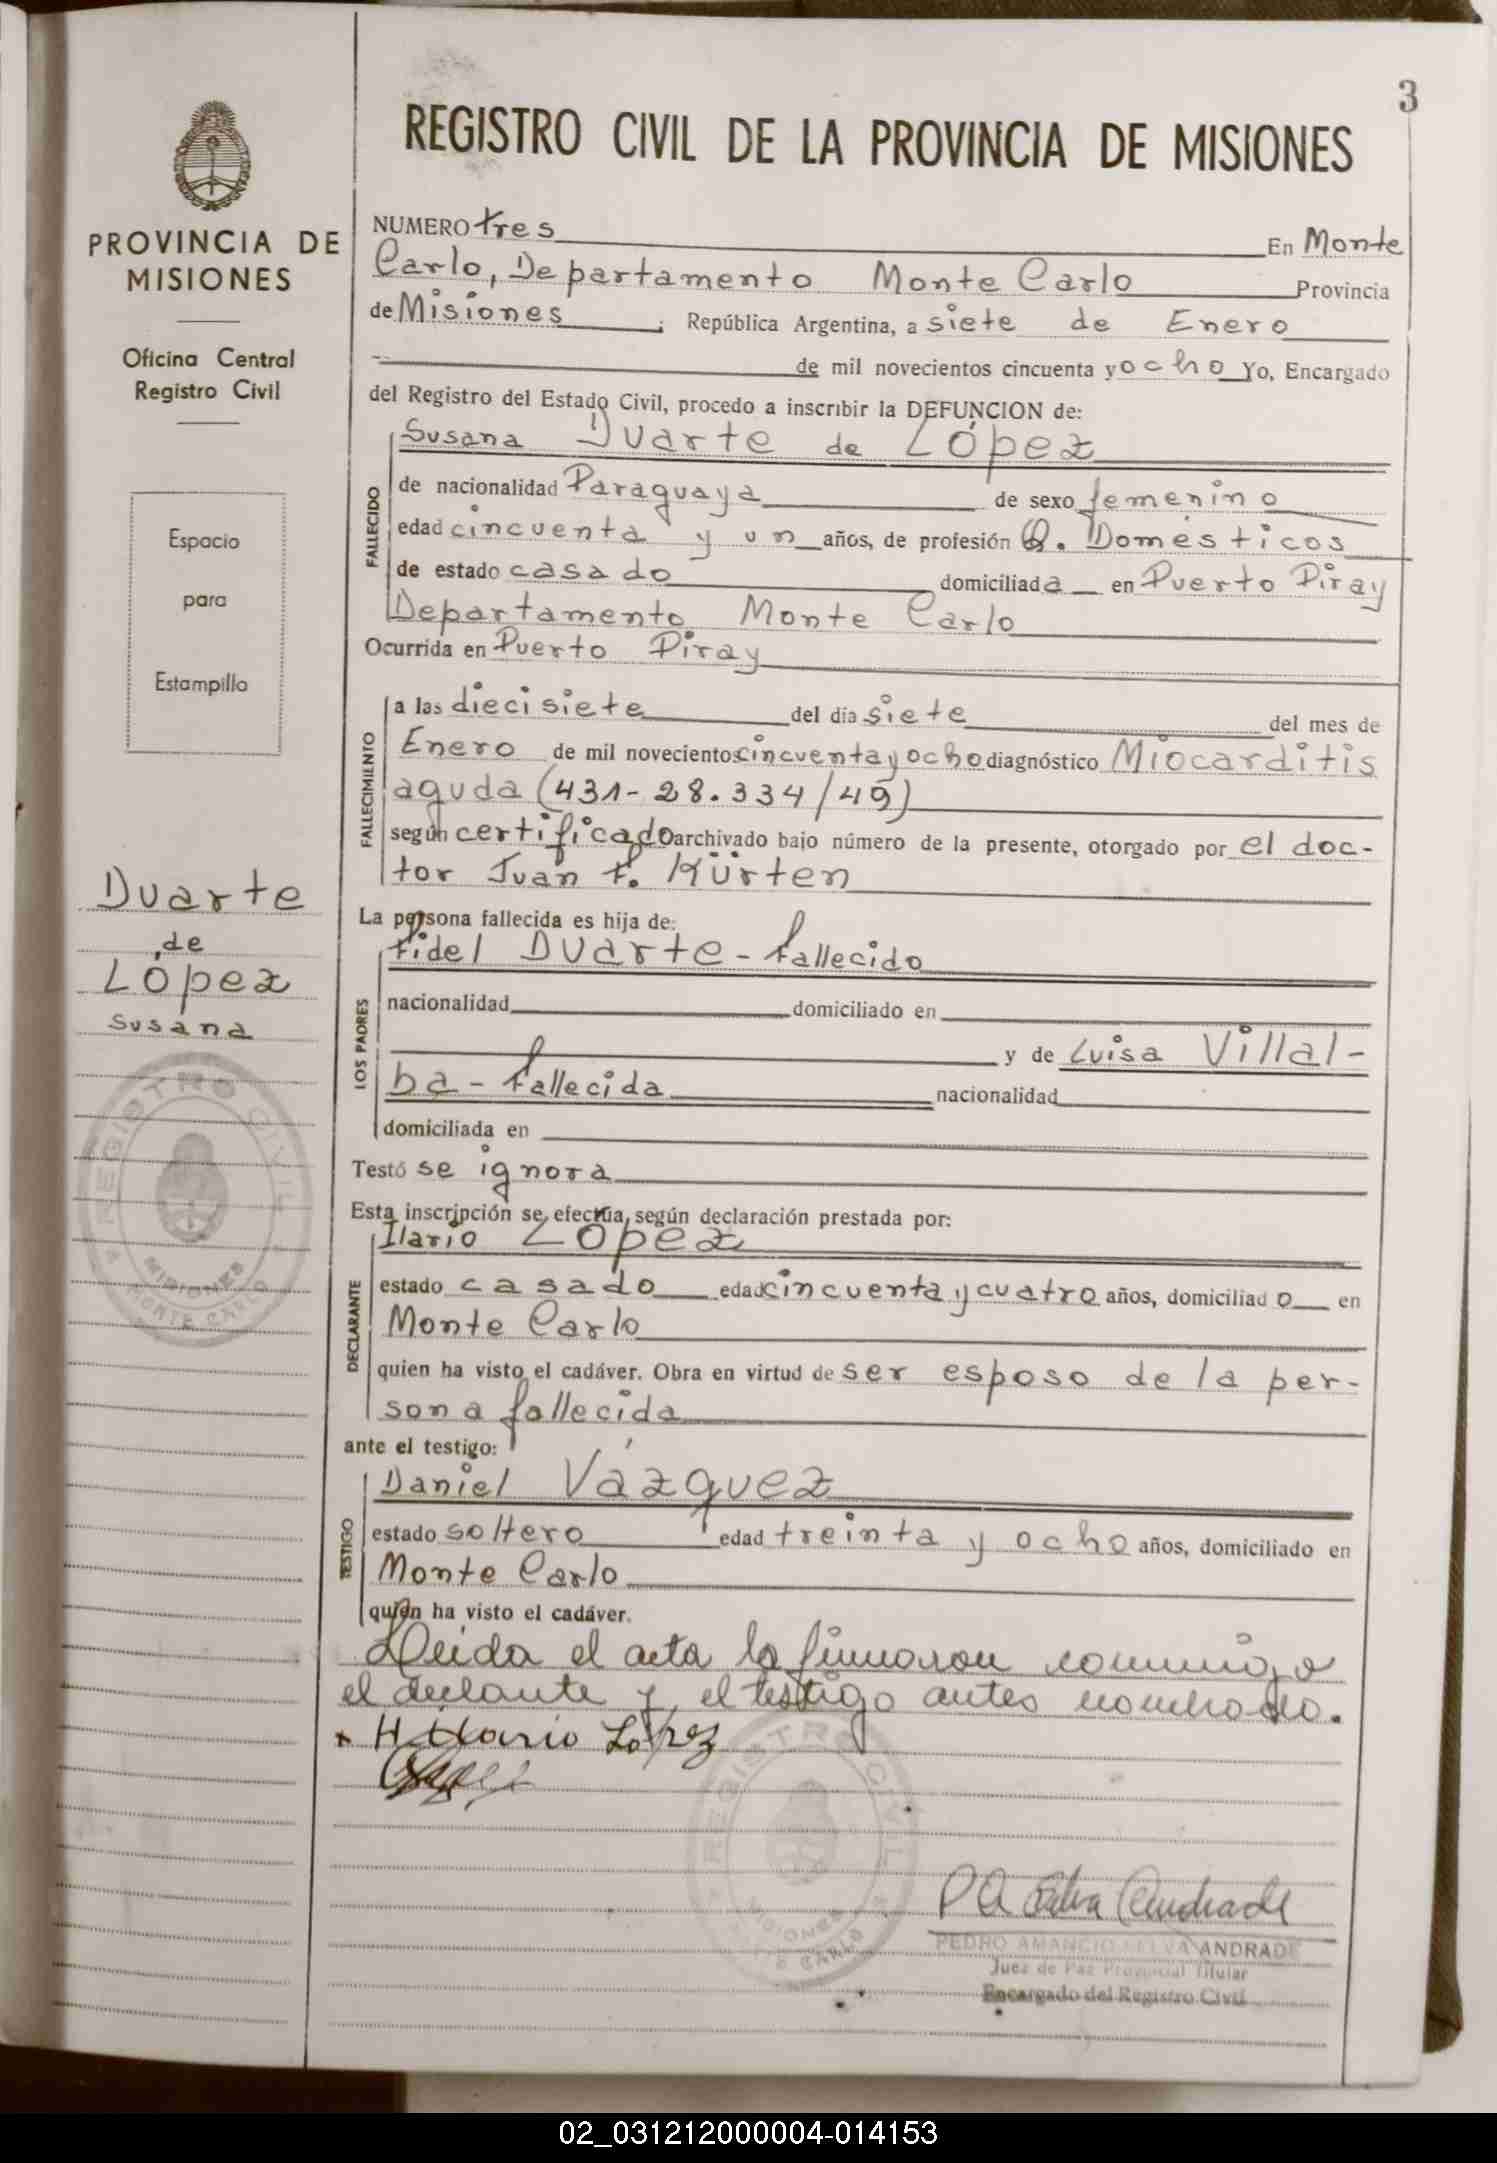 3
REGISTRO CIVIL DE LA PROVINCIA DE MISIONES
PROVINCIA DE
MISIONES
Oficina Central
Registro Civil
Espacio
para
Estampilla
Duarte
de
López
Susana
REGISTRO CIVIL
MISIONES
MONTE CARLO
NUMERO tres En Monte
Carlo, Departamento Monte Carlo Provincia
de Misiones ; República Argentina, a siete de Enero
de mil novecientos cincuenta y ocho Yo, Encargado
del Registro del Estado Civil, procedo a inscribir la DEFUNCION de:
Susana Duarte de López
FALLECIDO
de nacionalidad Paraguaya de sexo femenino
edad cincuenta y un años, de profesión Q. Domésticos
de estado casado domiciliada en Puerto Piray
Departamento Monte Carlo
Ocurrida en Puerto Piray
FALLECIMIENTO
a las diecisiete del día siete del mes de
Enero de mil novecientos cincuenta y ocho diagnóstico Miocarditis
aguda (431-28.334/49)
según certificado archivado bajo número de la presente, otorgado por el doc-
tor Juan F. Kürten
La persona fallecida es hija de:
LOS PADRES
Fidel Duarte - fallecido
nacionalidad domiciliado en
y de Luisa Villal-
ba - fallecida nacionalidad
domiciliada en
Testó se ignora
Esta inscripción se efectúa, según declaración prestada por:
DECLARANTE
Ilario López
estado casado edad cincuenta y cuatro años, domiciliado en
Monte Carlo
quien ha visto el cadáver. Obra en virtud de ser esposo de la per-
sona fallecida
ante el testigo:
TESTIGO
Daniel Vázquez
estado soltero edad treinta y ocho años, domiciliado en
Monte Carlo
quien ha visto el cadáver.
Leida el acta la firmaron conmigo
el declante y el testigo antes nombrado.
Hilario López
REGISTRO CIVIL
MISIONES
CARLO
PEDRO AMANCIO SELVA ANDRADE
Juez de Paz Provincial Titular
Encargado del Registro Civil
02_031212000004-014153